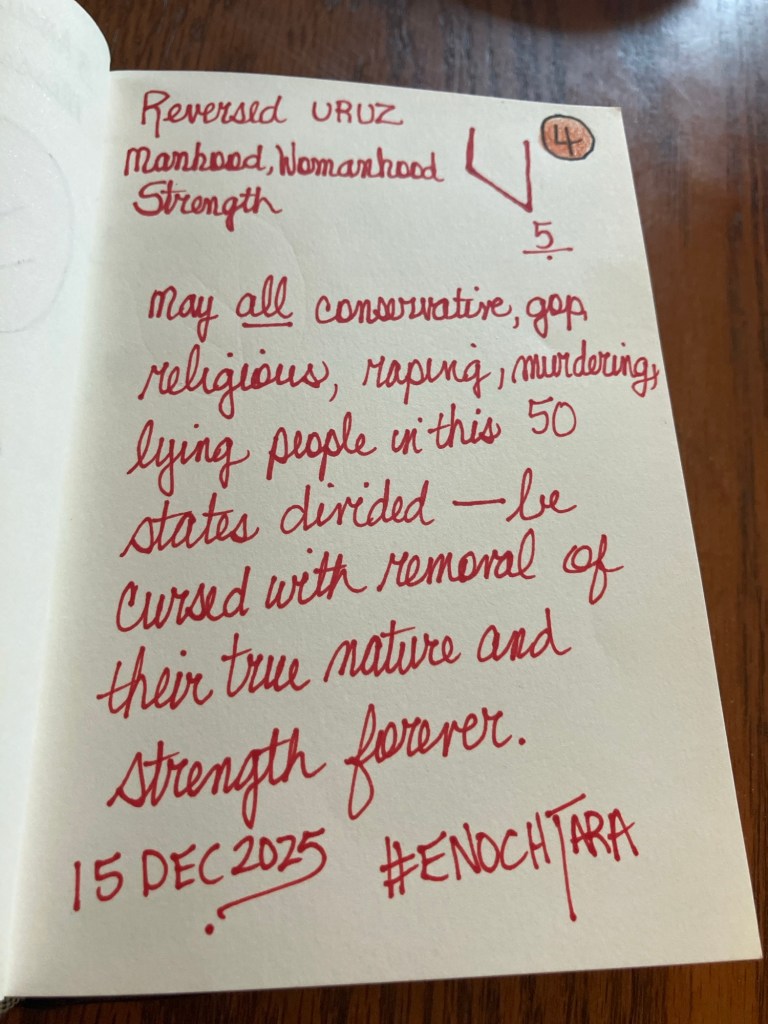 Reversed URUZ
4
Manhood, Womanhood
Strength
5
May all conservative, gop,
religious, raping, murdering,
lying people in this 50
states divided — be
cursed with removal of
their true nature and
strength forever.
15 DEC 2025 #ENOCHTARA